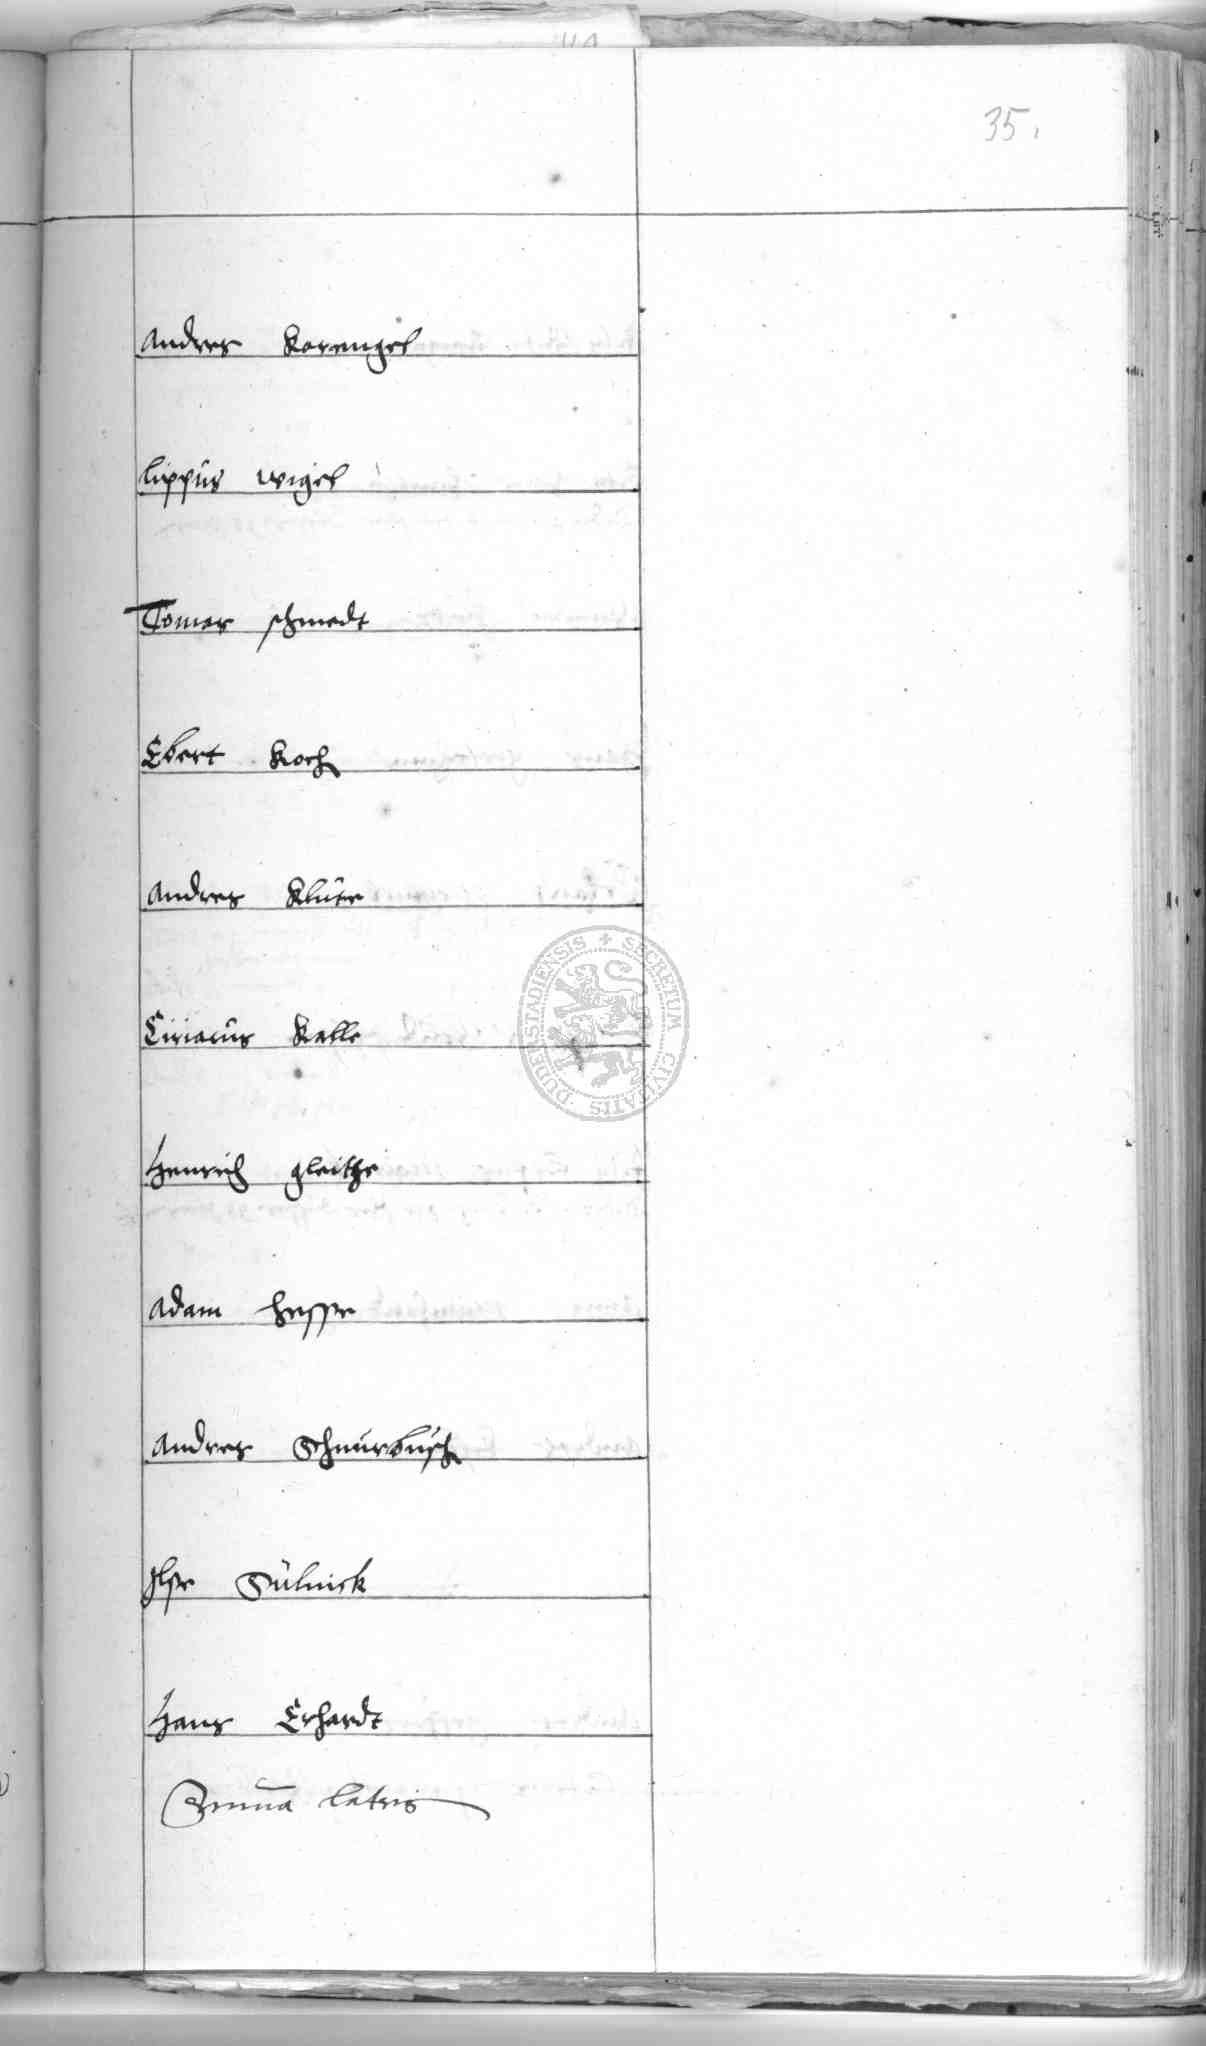 35.
Andres Korengel
lippus wigel
Tomas schmedt
Ebert Koch
Andres Klüte
Ciriacus Kalle
Henrich gleitze
Adam hesse
Andres Schnurbusch
Ilse Sülnick
Hans Erhardt
Suma lateris
SECRETUM CIVITATIS DUDERSTADIENSIS